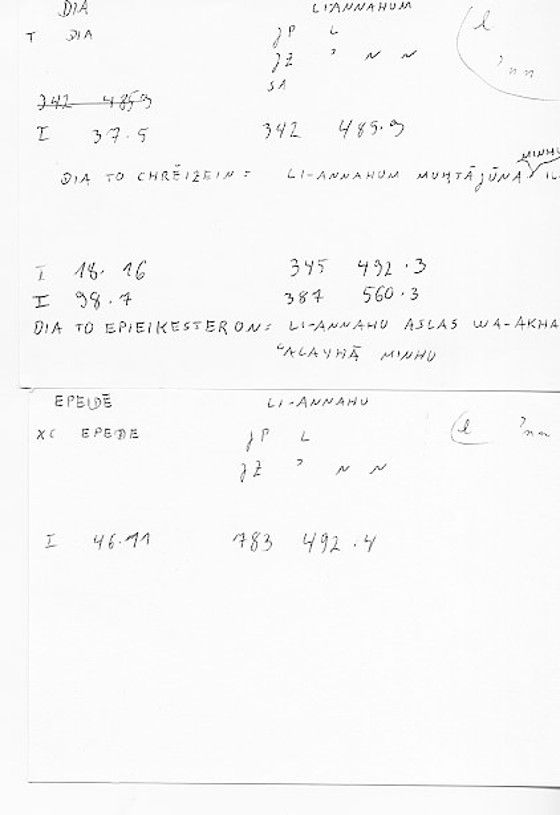 DIA LI-ANNAHUM
T DIA JP L
JZ ʾ N N
SA
ʾnn
342 485.9
I 37.5 342 485.9
MINHU
DIA TO CHRĒIZEIN = LI-ANNAHUM MUḤTĀJŪNA
I 18.16 345 492.3
I 98.7 387 560.3
DIA TO EPIEIKESTERON = LI-ANNAHU ASLAS WA-AKHA
ʿALAYHĀ MINHU
EPEIDE LI-ANNAHU
XC EPEIDE JP L
(l ʾnn
JZ ʾ N N
I 46.11 783 492.4